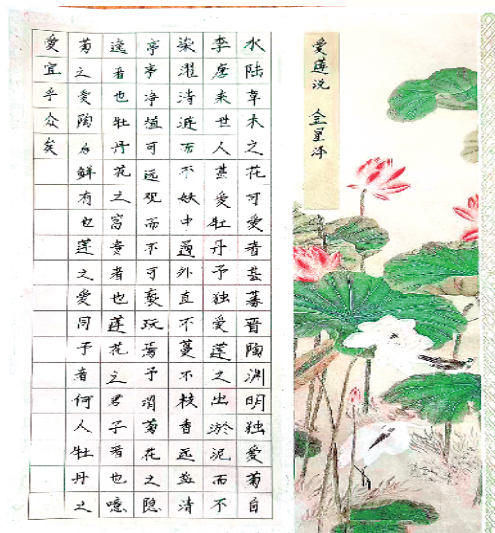 愛蓮说
水陆草木之花可愛者甚蕃晋陶渊明独愛菊自
李唐来世人甚愛牡丹予独愛蓮之出淤泥而不
染濯清涟而不妖中通外直不蔓不枝香远益清
亭亭净植可远观而不可亵玩焉予谓菊花之隐
逸者也牡丹花之富贵者也蓮花之君子者也噫
菊之愛陶后鲜有也蓮之愛同予者何人牡丹之
愛宜乎众矣